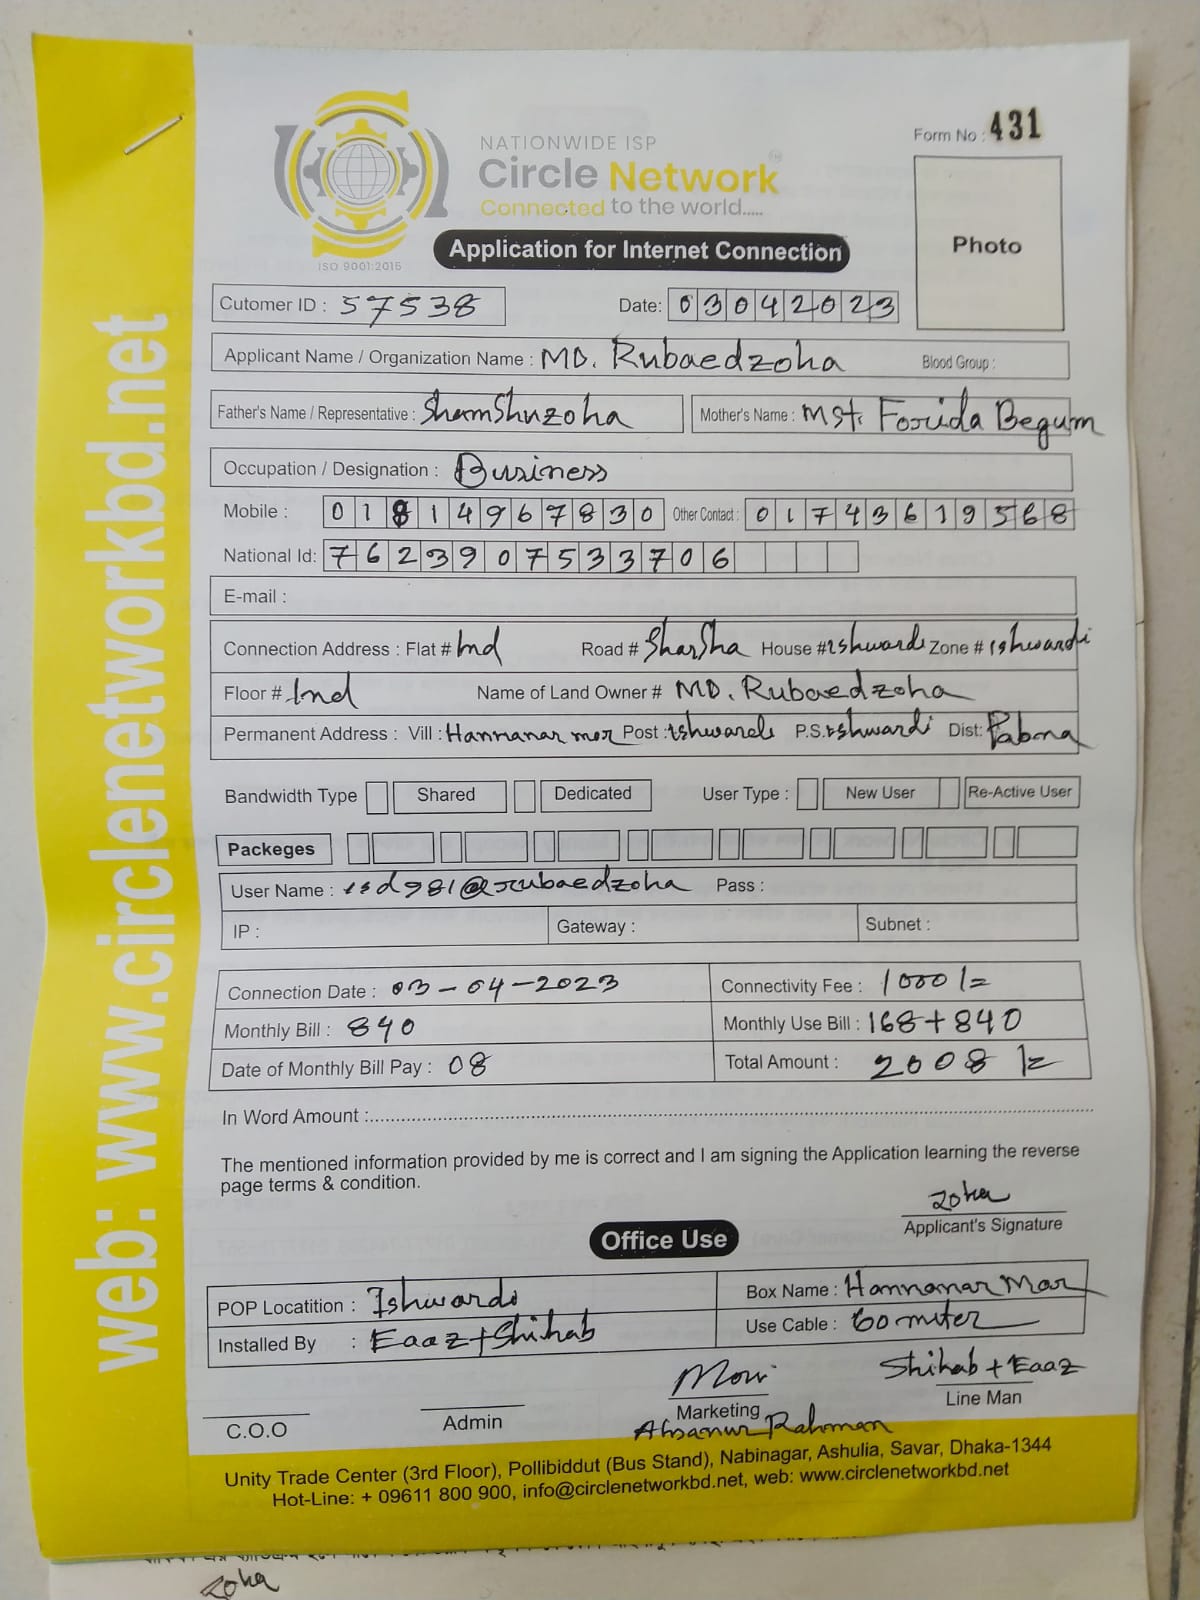 Form No : 431
NATIONWIDE ISP
Circle Network
Connected to the world.....
ISO 9001:2015
Application for Internet Connection
Photo
Cutomer ID : 57538 Date: 03042023
Applicant Name / Organization Name : MD. Rubaedzoha Blood Group :
Father's Name / Representative : Shamshuzoha Mother's Name : Mst. Forida Begum
Occupation / Designation : Business
Mobile : 01814967830 Other Contact : 01743619568
National Id: 7623907533706
E-mail :
Connection Address : Flat # Ind Road # Sharsha House # Ishwardi Zone # Ishwardi
Floor # Ind Name of Land Owner # MD. Rubaedzoha
Permanent Address : Vill : Hannanar mor Post : Ishwardi P.S. Ishwardi Dist: Pabna
Bandwidth Type Shared Dedicated User Type : New User Re-Active User
Packeges
User Name : isd981@rubaedzoha Pass :
IP : Gateway : Subnet :
Connection Date : 03-04-2023 Connectivity Fee : 1000/=
Monthly Bill : 840 Monthly Use Bill : 168+840
Date of Monthly Bill Pay : 08 Total Amount : 2008/=
In Word Amount :
The mentioned information provided by me is correct and I am signing the Application learning the reverse
page terms & condition.
Zoha
Applicant's Signature
Office Use
POP Locatition : Ishwardi Box Name : Hannanar Mor
Installed By : Eaaz+Shihab Use Cable : 60 miter
Shihab + Eaaz
C.O.O Admin Marketing Line Man
Ahsanur Rahman
Unity Trade Center (3rd Floor), Pollibiddut (Bus Stand), Nabinagar, Ashulia, Savar, Dhaka-1344
Hot-Line: + 09611 800 900, info@circlenetworkbd.net, web: www.circlenetworkbd.net
web: www.circlenetworkbd.net
Zoha